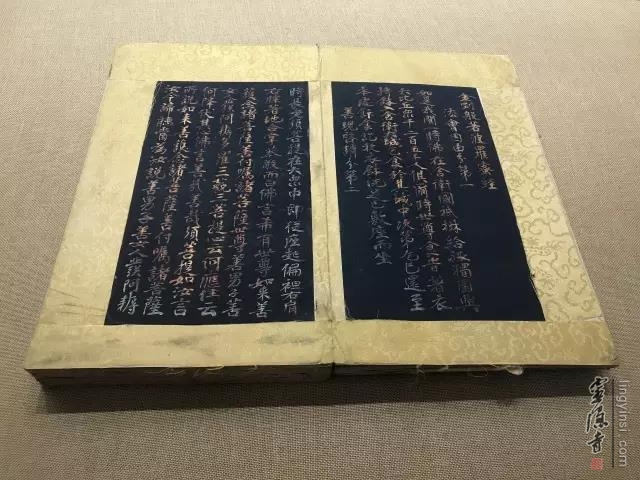 金剛般若波羅蜜經
法會因由分第一
如是我聞一時佛在舍衛國祇樹給孤獨園與
大比丘眾千二百五十人俱爾時世尊食時著衣
持鉢入舍衛城乞食於其城中次第乞已還至
本處飯食訖收衣鉢洗足已敷座而坐
善現啟請分第二
時長老須菩提在大眾中即從座起偏袒右肩
右膝著地合掌恭敬而白佛言希有世尊如來善
護念諸菩薩善付囑諸菩薩世尊善男子善
女人發阿耨多羅三藐三菩提心云何應住云
何降伏其心佛言善哉善哉須菩提如汝言
所說如來善護念諸菩薩善付囑諸菩薩
汝今諦聽當為汝說善男子善女人發阿耨
靈隱寺
lingyinsi.com